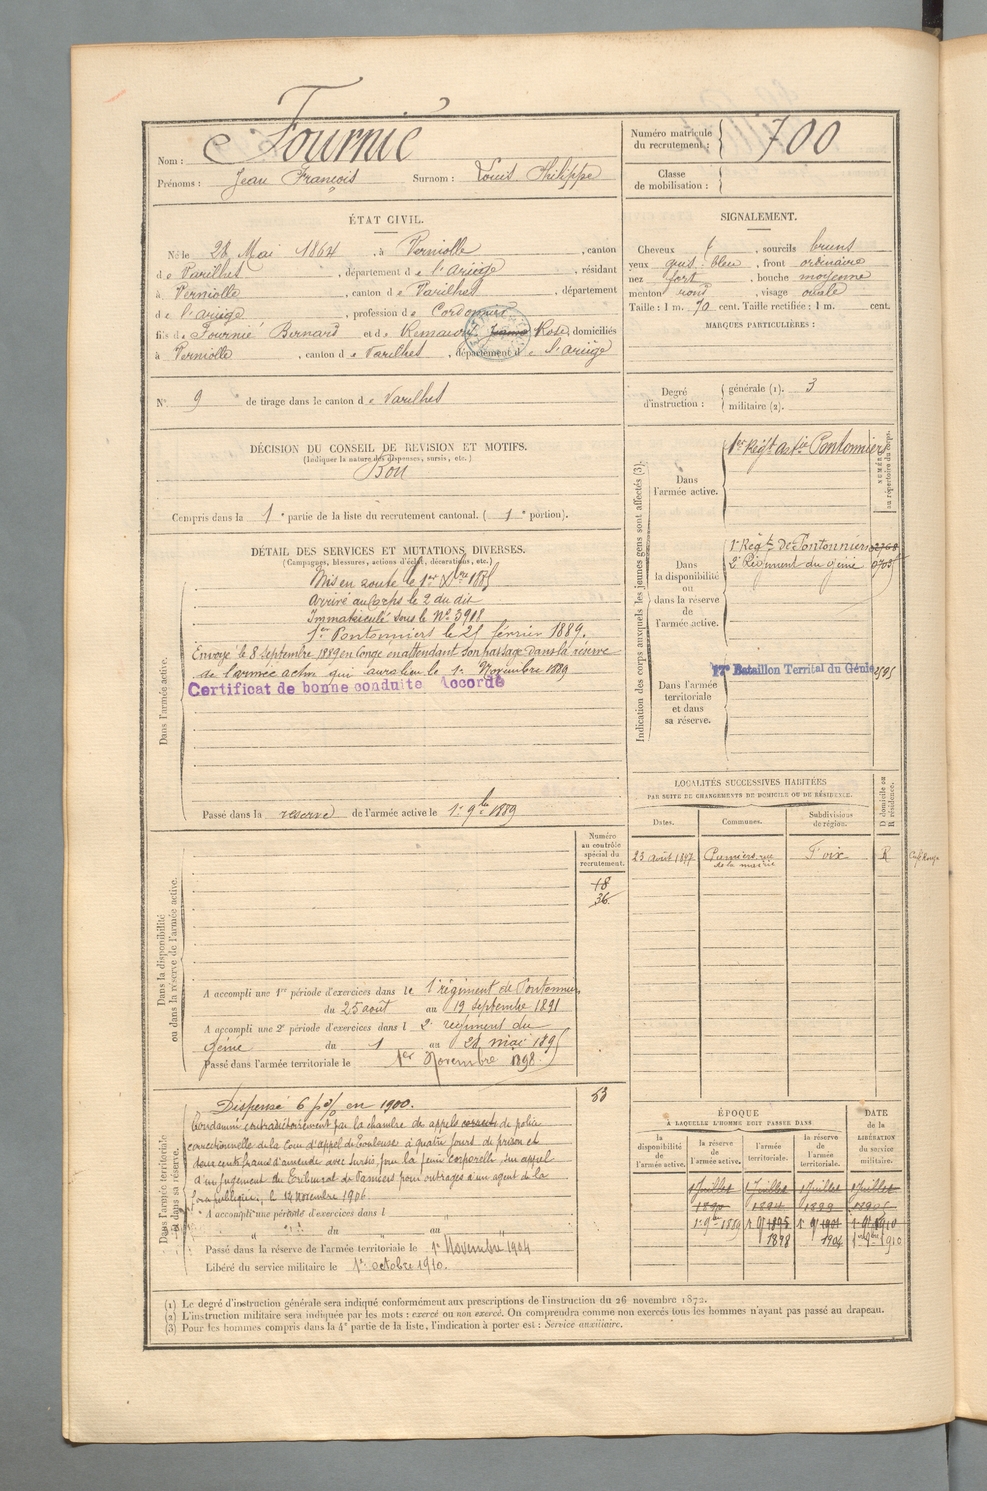 Nom : Fournié
Prénoms : Jean François Surnom : Louis Philippe
Numéro matricule du recrutement : 700
Classe de mobilisation :
ÉTAT CIVIL.
Né le 28 Mai 1864, à Verniolle, canton
de Varilhes, département de l'Ariège, résidant
à Verniolle, canton de Varilhes, département
de l'ariège, profession de Cordonnier
fils de Fournié Bernard et de Remaury Rose, domiciliés
à Verniolle, canton de Varilhes, département de l'ariège
N° 9 de tirage dans le canton de Varilhes
SIGNALEMENT.
Cheveux, sourcils bruns
yeux gris bleu, front ordinaire
nez fort, bouche moyenne
menton rond, visage ovale
Taille : 1 m. 70 cent. Taille rectifiée : 1 m. cent.
MARQUES PARTICULIÈRES :
Degré d'instruction : générale (1). 3
militaire (2).
DÉCISION DU CONSEIL DE REVISION ET MOTIFS.
(Indiquer la nature des dispenses, sursis, etc.)
Bon
Compris dans la 1e partie de la liste du recrutement cantonal. (1e portion).
DÉTAIL DES SERVICES ET MUTATIONS DIVERSES.
(Campagnes, blessures, actions d'éclat, décorations, etc.)
Dans l'armée active.
Mis en route le 1er Xbre 1885
Arrivé au Corps le 2 du dit
Immatriculé sous le N° 3918
1er Pontonniers le 21 février 1889.
Envoyé le 8 Septembre 1889 en Congé en attendant son passage dans la réserve
de l'armée active qui aura lieu le 1er Novembre 1889
Certificat de bonne conduite Accordé
Passé dans la réserve de l'armée active le 1er 9bre 1889
Indication des corps auxquels les jeunes gens sont affectés (3).
NUMÉRO au répertoire du corps.
Dans l'armée active.
1er Régt Artie Pontonniers
Dans la disponibilité ou dans la réserve de l'armée active.
1er Régt De Pontonniers 2768
2e Régiment du génie
Dans l'armée territoriale et dans sa réserve.
17e Bataillon Territal du Génie
LOCALITÉS SUCCESSIVES HABITÉES
PAR SUITE DE CHANGEMENTS DE DOMICILE OU DE RÉSIDENCE.
Dates. Communes. Subdivisions de région. D domicile ou R résidence.
23 août 1897 Pamiers rue de la mairie Foix R
Dans la disponibilité ou dans la réserve de l'armée active.
Numéro au contrôle spécial du recrutement.
18
36
A accompli une 1re période d'exercices dans le 1er régiment de Pontonniers
du 25 août au 19 septembre 1891
A accompli une 2e période d'exercices dans l 2e régiment du
Génie du 1 au 28 mai 1895
Passé dans l'armée territoriale le 1er Novembre 1898
Dans l'armée territoriale et dans sa réserve.
53
Dispensé 6 p% en 1900.
Condamné contradictoirement par la chambre des appels de police
correctionnelle de la Cour d'appel de Toulouse à quatre jours de prison et
deux cents francs d'amende avec sursis pour la peine corporelle, sur appel
d'un jugement du Tribunal de Pamiers pour outrages à un agent de la
force publique, le 14 novembre 1906
A accompli une période d'exercices dans l
du au
Passé dans la réserve de l'armée territoriale le 1er Novembre 1904
Libéré du service militaire le 1er octobre 1910.
ÉPOQUE
À LAQUELLE L'HOMME DOIT PASSER DANS
DATE de la LIBÉRATION du service militaire.
la disponibilité de l'armée active. la réserve de l'armée active. l'armée territoriale. la réserve de l'armée territoriale.
1 Juillet 1 Juillet 1 Juillet 1 Juillet
1890 1894 1899 1905
1er 9bre 1889
1898 1904
(1) Le degré d'instruction générale sera indiqué conformément aux prescriptions de l'instruction du 26 novembre 1872.
(2) L'instruction militaire sera indiquée par les mots : exercé ou non exercé. On comprendra comme non exercés tous les hommes n'ayant pas passé au drapeau.
(3) Pour les hommes compris dans la 4e partie de la liste, l'indication à porter est : Service auxiliaire.